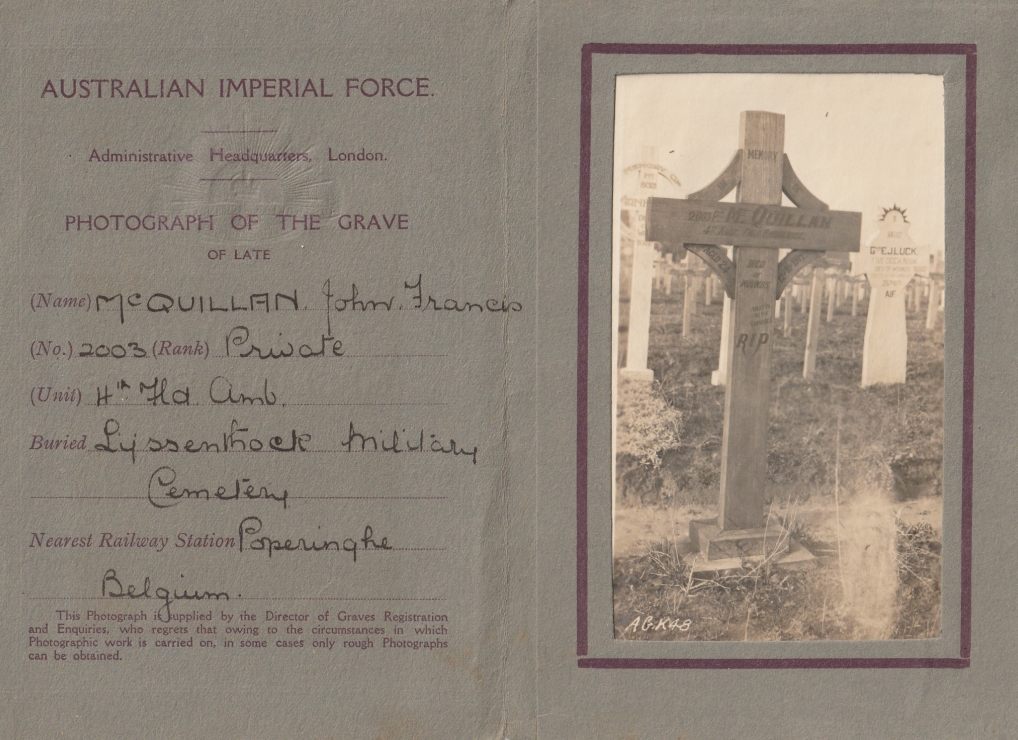 AUSTRALIAN IMPERIAL FORCE.
Administrative Headquarters, London.
PHOTOGRAPH OF THE GRAVE
OF LATE
(Name) McQUILLAN. John. Francis
(No.) 2003 (Rank) Private
(Unit) 4th Fld Amb.
Buried Lijssenthock Military
Cemetery
Nearest Railway Station Poperinghe
Belgium.
This Photograph is supplied by the Director of Graves Registration
and Enquiries, who regrets that owing to the circumstances in which
Photographic work is carried on, in some cases only rough Photographs
can be obtained.
MEMORY
2003 Pte McQUILLAN
DIED
OF
WOUNDS
R.I.P
Gnr E.J.LUCK
AIF
A.G.K48